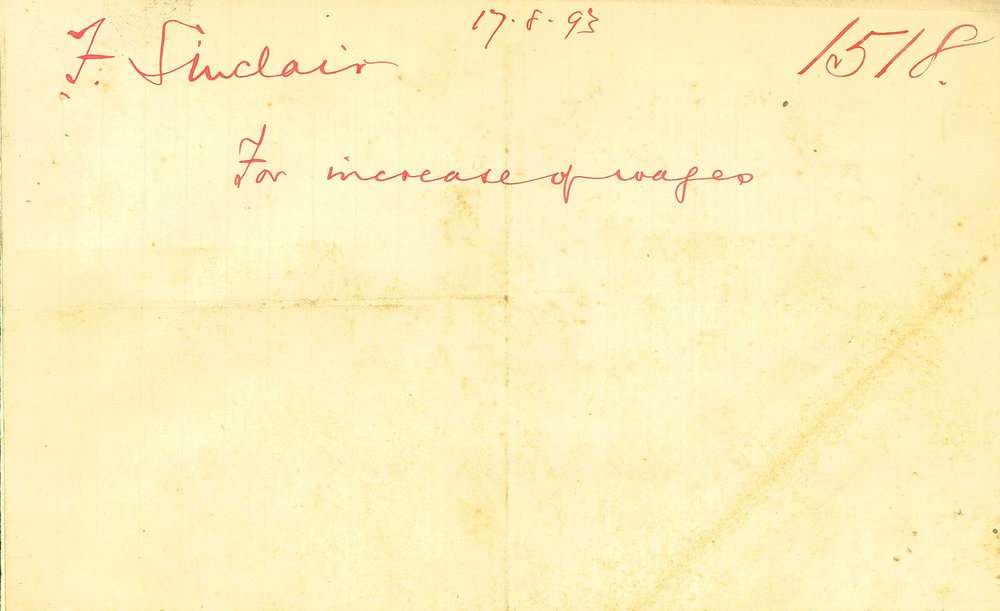 17.8.93
F. Sinclair 1518.
For increase of wages